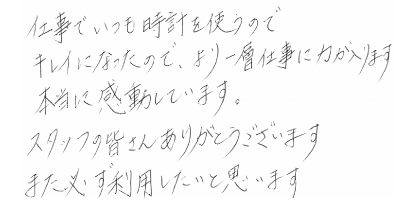 仕事でいつも時計を使うので
キレイになったので、より一層仕事に力が入ります
本当に感動しています。
スタッフの皆さんありがとうございます
また必ず利用したいと思います